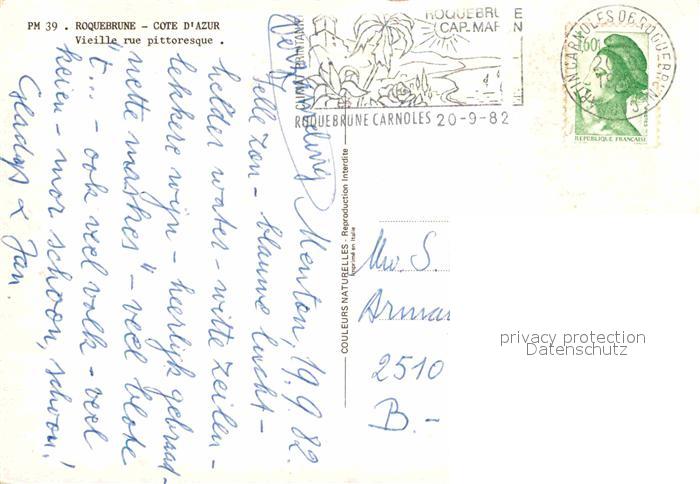 PM 39 . ROQUEBRUNE - COTE D'AZUR
Vieille rue pittoresque .
ROQUEBRUNE
CAP. MARTIN
ROQUEBRUNE CARNOLES 20-9-82
1,60
REPUBLIQUE FRANÇAISE
Menton, 19.9.82
felle zon - blauwe lucht -
helder water - witte zeilen -
lekkere wijn - heerlijk gebraad -
"nette maskes" - veel blote
"t... - ook veel volk - veel
keien - mor schoon, schoon!
Gladys & Jan
COULEURS NATURELLES - Reproduction Interdite
Imprimé en Italie
Mw. S.
Arman
2510
B.-
privacy protection
Datenschutz